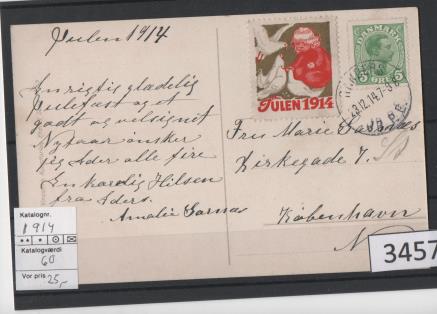 Julen 1914
En rigtig glædelig
Julefest og et
godt og velsignet
Nytaar ønsker
jeg Eder alle fire
En kærlig Hilsen
fra Eders.
Amalie
JULEN 1914
DANMARK
5 ØRE 5
23.12.14.
JB.P.E.
Fru Marie
Kirkegade 7.
København
N
Katalognr.
1914
Katalogværdi
60
Vor pris
25,-
3457